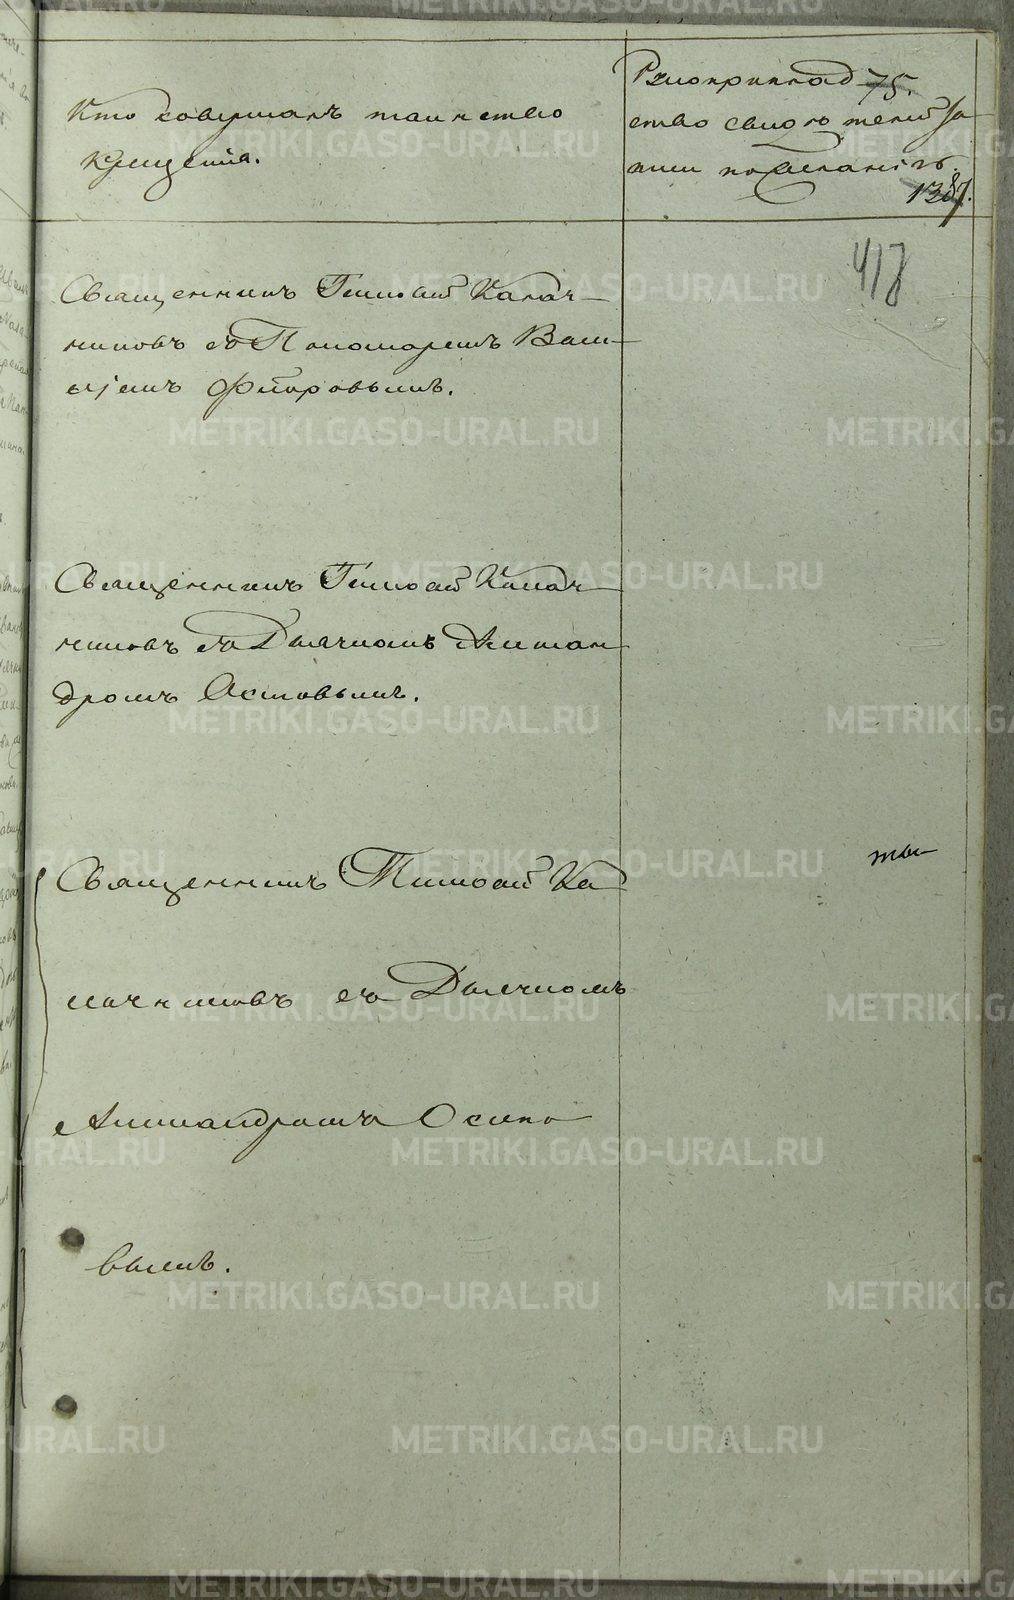 Кто совершалъ таинство
крещенія.
Рукоприклад 75.
ство свидѣтелей за
писи по желанію.
1387.
417
Священникъ Тимофей Калач
никовъ съ Пономаремъ Васи
ліемъ Флоровымъ.
Священникъ Тимофей Калач
никовъ съ Дьячкомъ Алексан
дромъ Осиповымъ.
Священникъ Тимофей Ка
лачниковъ съ Дьячкомъ
Александромъ Осипо
вымъ.
METRIKI.GASO-URAL.RU